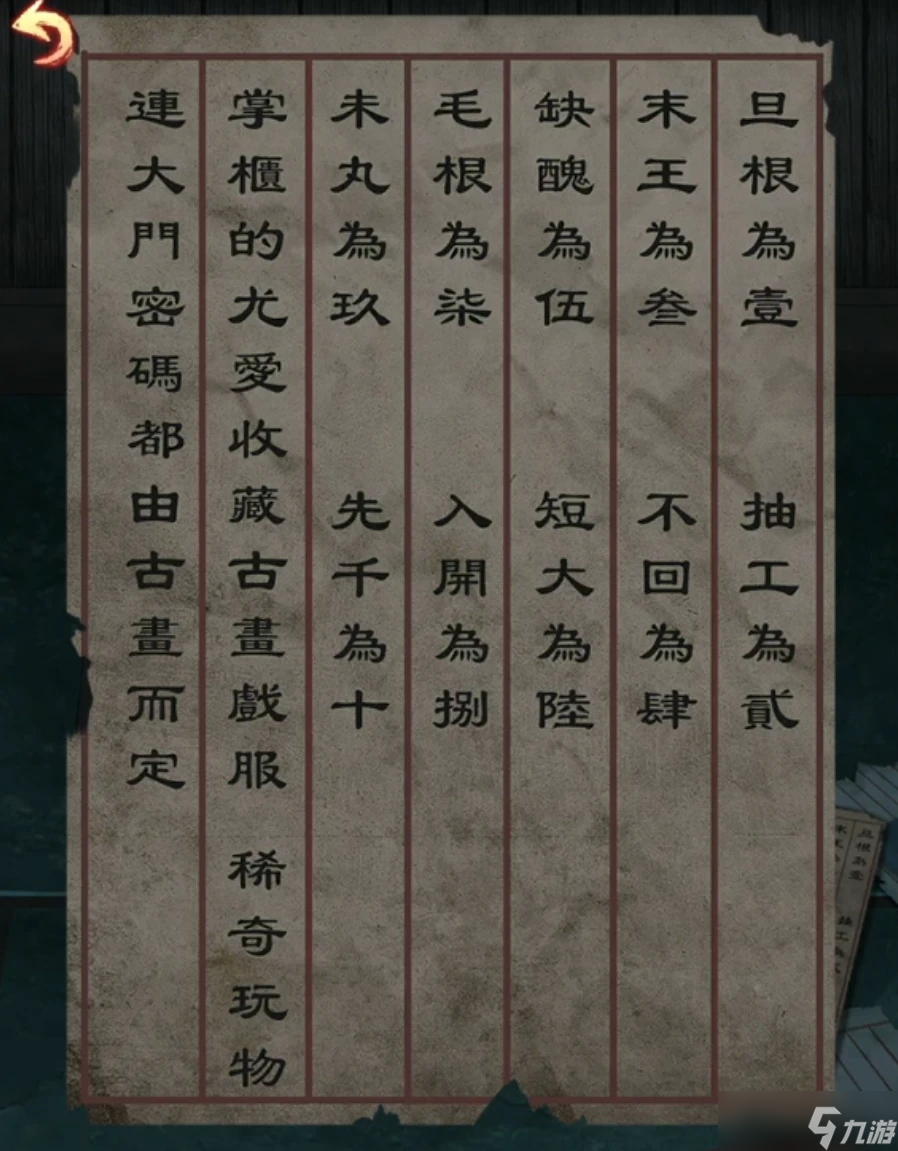 旦根為壹 抽工為貳
末王為叁 不回為肆
缺醜為伍 短大為陸
毛根為柒 入開為捌
未丸為玖 先千為十
掌櫃的尤愛收藏古畫戲服 稀奇玩物
連大門密碼都由古畫而定
旦根為壹
抽工
九游